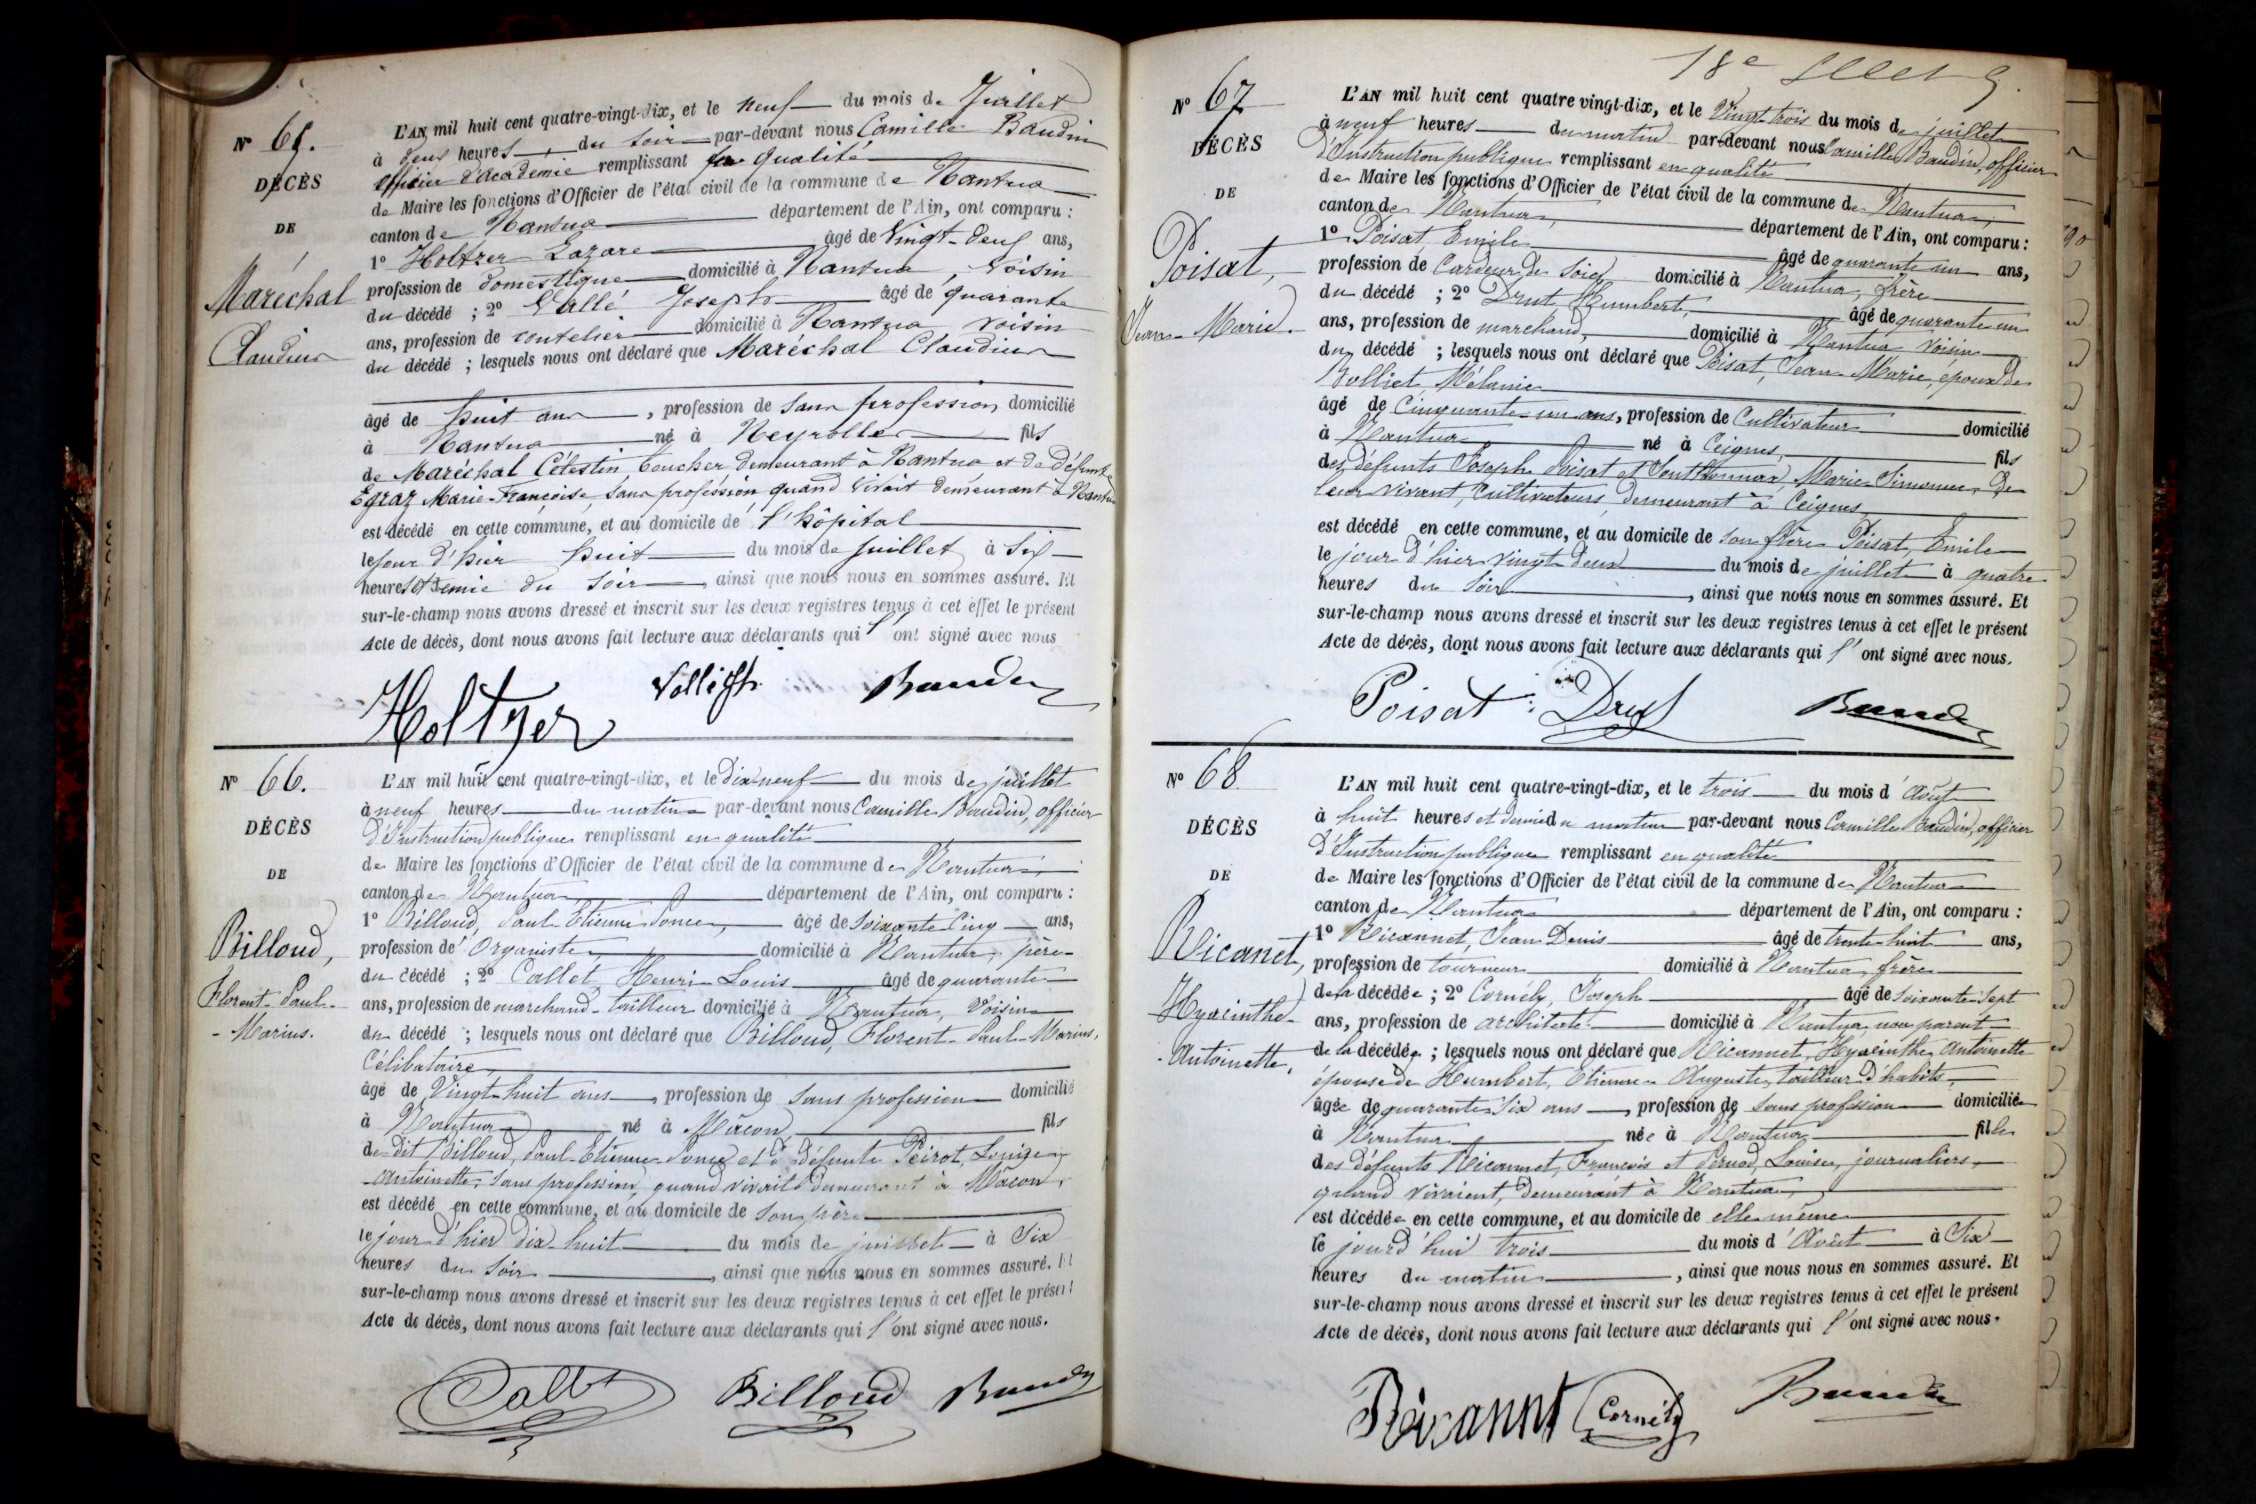 N° 65.
DÉCÈS
DE
Maréchal
Claudius
L'AN mil huit cent quatre-vingt-dix, et le neuf du mois de Juillet
à deux heures, du soir par-devant nous Camille Baudin
officier d'académie remplissant en qualité
de Maire les fonctions d'Officier de l'état civil de la commune de Nantua
canton de Nantua département de l'Ain, ont comparu :
1° Holtzer Lazare âgé de Vingt-deux ans,
profession de domestique domicilié à Nantua, voisin
du décédé ; 2° Vallé Joseph âgé de quarante
ans, profession de coutelier domicilié à Nantua voisin
du décédé ; lesquels nous ont déclaré que Maréchal Claudius
âgé de huit ans, profession de sans profession domicilié
à Nantua né à Neyrolles fils
de Maréchal Célestin boucher demeurant à Nantua et de défunte
Egraz Marie-Françoise, sans profession quand vivait demeurant à Nantua
est décédé en cette commune, et au domicile de l'hôpital
le jour d'hier huit du mois de juillet à six
heures et demie du soir, ainsi que nous nous en sommes assuré. Et
sur-le-champ nous avons dressé et inscrit sur les deux registres tenus à cet effet le présent
Acte de décès, dont nous avons fait lecture aux déclarants qui l'ont signé avec nous
Holtzer Baudin
N° 66.
DÉCÈS
DE
Billoud,
Florent-Paul-
-Marius.
L'AN mil huit cent quatre-vingt-dix, et le dix neuf du mois de juillet
à neuf heures du matin par-devant nous Camille Baudin, officier
d'Instruction publique remplissant en qualité
de Maire les fonctions d'Officier de l'état civil de la commune de Nantua,
canton de Nantua département de l'Ain, ont comparu :
1° Billoud, Paul Etienne Ponce, âgé de soixante cinq ans,
profession de Organiste, domicilié à Nantua, père
du décédé ; 2° Callet, Henri Louis âgé de quarante
ans, profession de marchand-tailleur domicilié à Nantua, voisin
du décédé ; lesquels nous ont déclaré que Billoud, Florent-Paul-Marius,
Célibataire,
âgé de Vingt-huit ans, profession de sans profession domicilié
à Nantua né à Mâcon fils
de dit Billoud, Paul-Etienne-Ponce et de défunte Peirot, Louise-
-Antoinette, sans profession, quand vivait demeurant à Mâcon,
est décédé en cette commune, et au domicile de son père
le jour d'hier dix-huit du mois de juillet à six
heures du soir, ainsi que nous nous en sommes assuré. Et
sur-le-champ nous avons dressé et inscrit sur les deux registres tenus à cet effet le présent
Acte de décès, dont nous avons fait lecture aux déclarants qui l'ont signé avec nous.
Callet Billoud Baudin
18e
N° 67
DÉCÈS
DE
Poisat,
Jean-Marie.
L'AN mil huit cent quatre vingt-dix, et le Vingt trois du mois de juillet
à neuf heures du matin par-devant nous Camille Baudin, officier
d'Instruction publique remplissant en qualité
de Maire les fonctions d'Officier de l'état civil de la commune de Nantua,
canton de Nantua, département de l'Ain, ont comparu :
1° Poisat, Emile âgé de quarante un ans,
profession de Cardeur de soies domicilié à Nantua, frère
du décédé ; 2° Drut, Humbert, âgé de quarante un
ans, profession de marchand, domicilié à Nantua voisin
du décédé ; lesquels nous ont déclaré que Poisat, Jean-Marie, époux de
Bolliet, Mélanie
âgé de Cinquante-un ans, profession de Cultivateur domicilié
à Nantua né à Ceignes, fils
des défunts Joseph Poisat et Marie-Simonne, de
leur vivant, cultivateurs, demeurant à Ceignes
est décédé en cette commune, et au domicile de son frère Poisat, Emile
le jour d'hier vingt deux du mois de juillet à quatre
heures du soir, ainsi que nous nous en sommes assuré. Et
sur-le-champ nous avons dressé et inscrit sur les deux registres tenus à cet effet le présent
Acte de décès, dont nous avons fait lecture aux déclarants qui l'ont signé avec nous.
Poisat Drut Baudin
N° 68
DÉCÈS
DE
Ricanet,
Hyacinthe-
-Antoinette,
L'AN mil huit cent quatre-vingt-dix, et le trois du mois d'Août
à huit heures et demie du matin par-devant nous Camille Baudin, officier
d'Instruction publique remplissant en qualité
de Maire les fonctions d'Officier de l'état civil de la commune de Nantua
canton de Nantua département de l'Ain, ont comparu :
1° Ricannet, Jean Denis âgé de trente-huit ans,
profession de tourneur domicilié à Nantua, frère
de la décédée ; 2° Cornély, Joseph âgé de soixante-sept
ans, profession de architecte domicilié à Nantua, non parent
de la décédée ; lesquels nous ont déclaré que Ricannet, Hyacinthe, Antoinette
épouse de Humbert, Etienne-Auguste, tailleur d'habits,
âgée de quarante-six ans, profession de sans profession domiciliée
à Nantua née à Nantua fille
des défunts Ricannet, François et Pernod, Louise, journaliers,
quand vivaient, demeurant à Nantua,
est décédée en cette commune, et au domicile de elle-même
le jourd'hui trois du mois d'Août à Six
heures du matin, ainsi que nous nous en sommes assuré. Et
sur-le-champ nous avons dressé et inscrit sur les deux registres tenus à cet effet le présent
Acte de décès, dont nous avons fait lecture aux déclarants qui l'ont signé avec nous.
Ricannet Cornély Baudin